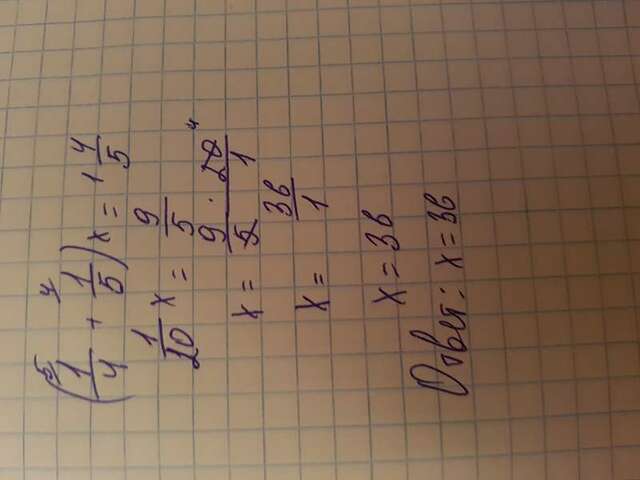 (1/4 ⁵ + 1/5 ⁴) x = 1 4/5
1/20 x = 9/5
x = 9 · 20 ⁴ / 5 1
x = 36/1
x = 36
Ответ: x = 36